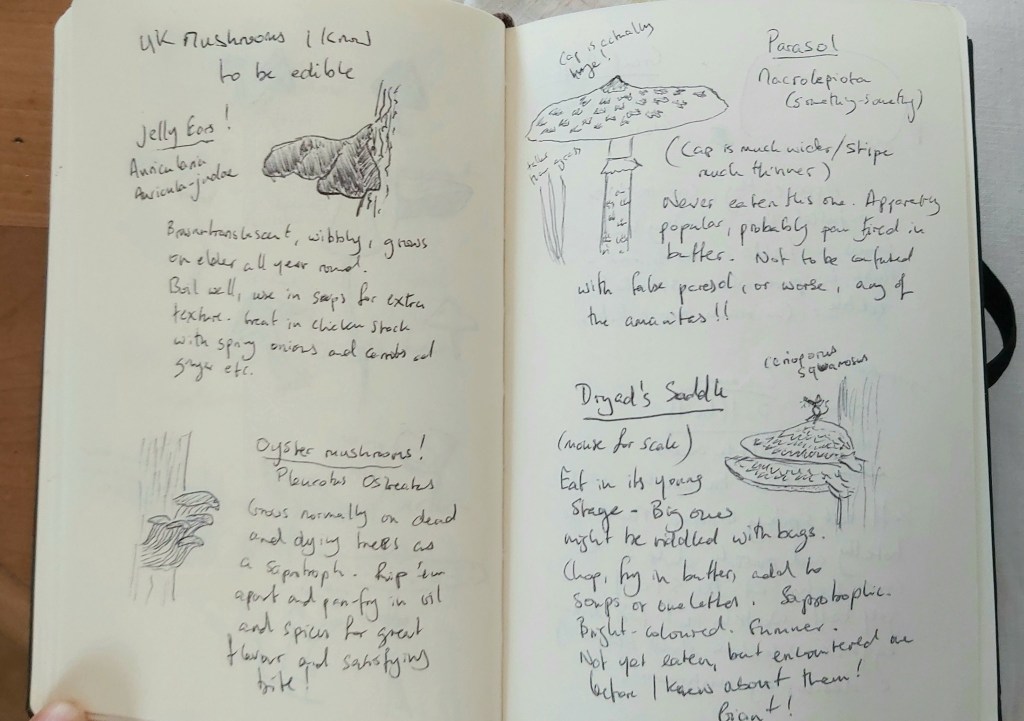 UK Mushrooms I know
to be edible
Jelly Ears!
Auricularia
Auricula-judae
Brown translescent, wibbly, grows
on elder all year round.
Boil well, use in soups for extra
texture. Great in chicken stock
with spring onions and carrots and
ginger etc.
Oyster mushrooms!
Pleurotus Ostreatus
Grows normally on dead
and dying trees as
a saprotroph. Rip 'em
apart and pan-fry in oil
and spices for great
flavour and satisfying
bite!
Cap is actually
huge!
Parasol
Macrolepiota
(something-something)
(Cap is much wider/stipe
much thinner)
Never eaten this one. Apparently
popular, probably pan fried in
butter. Not to be confused
with false parasol, or worse, any of
the amanitas!!
Cerioporus
squamosus
Dryad's Saddle
(mouse for scale)
Eat in its young
stage - Big ones
might be riddled with bugs.
Chop, fry in butter, add to
soups or omelettes. Saprotrophic.
Bright-coloured. Summer.
Not yet eaten, but encountered one
before I knew about them!
Giant!